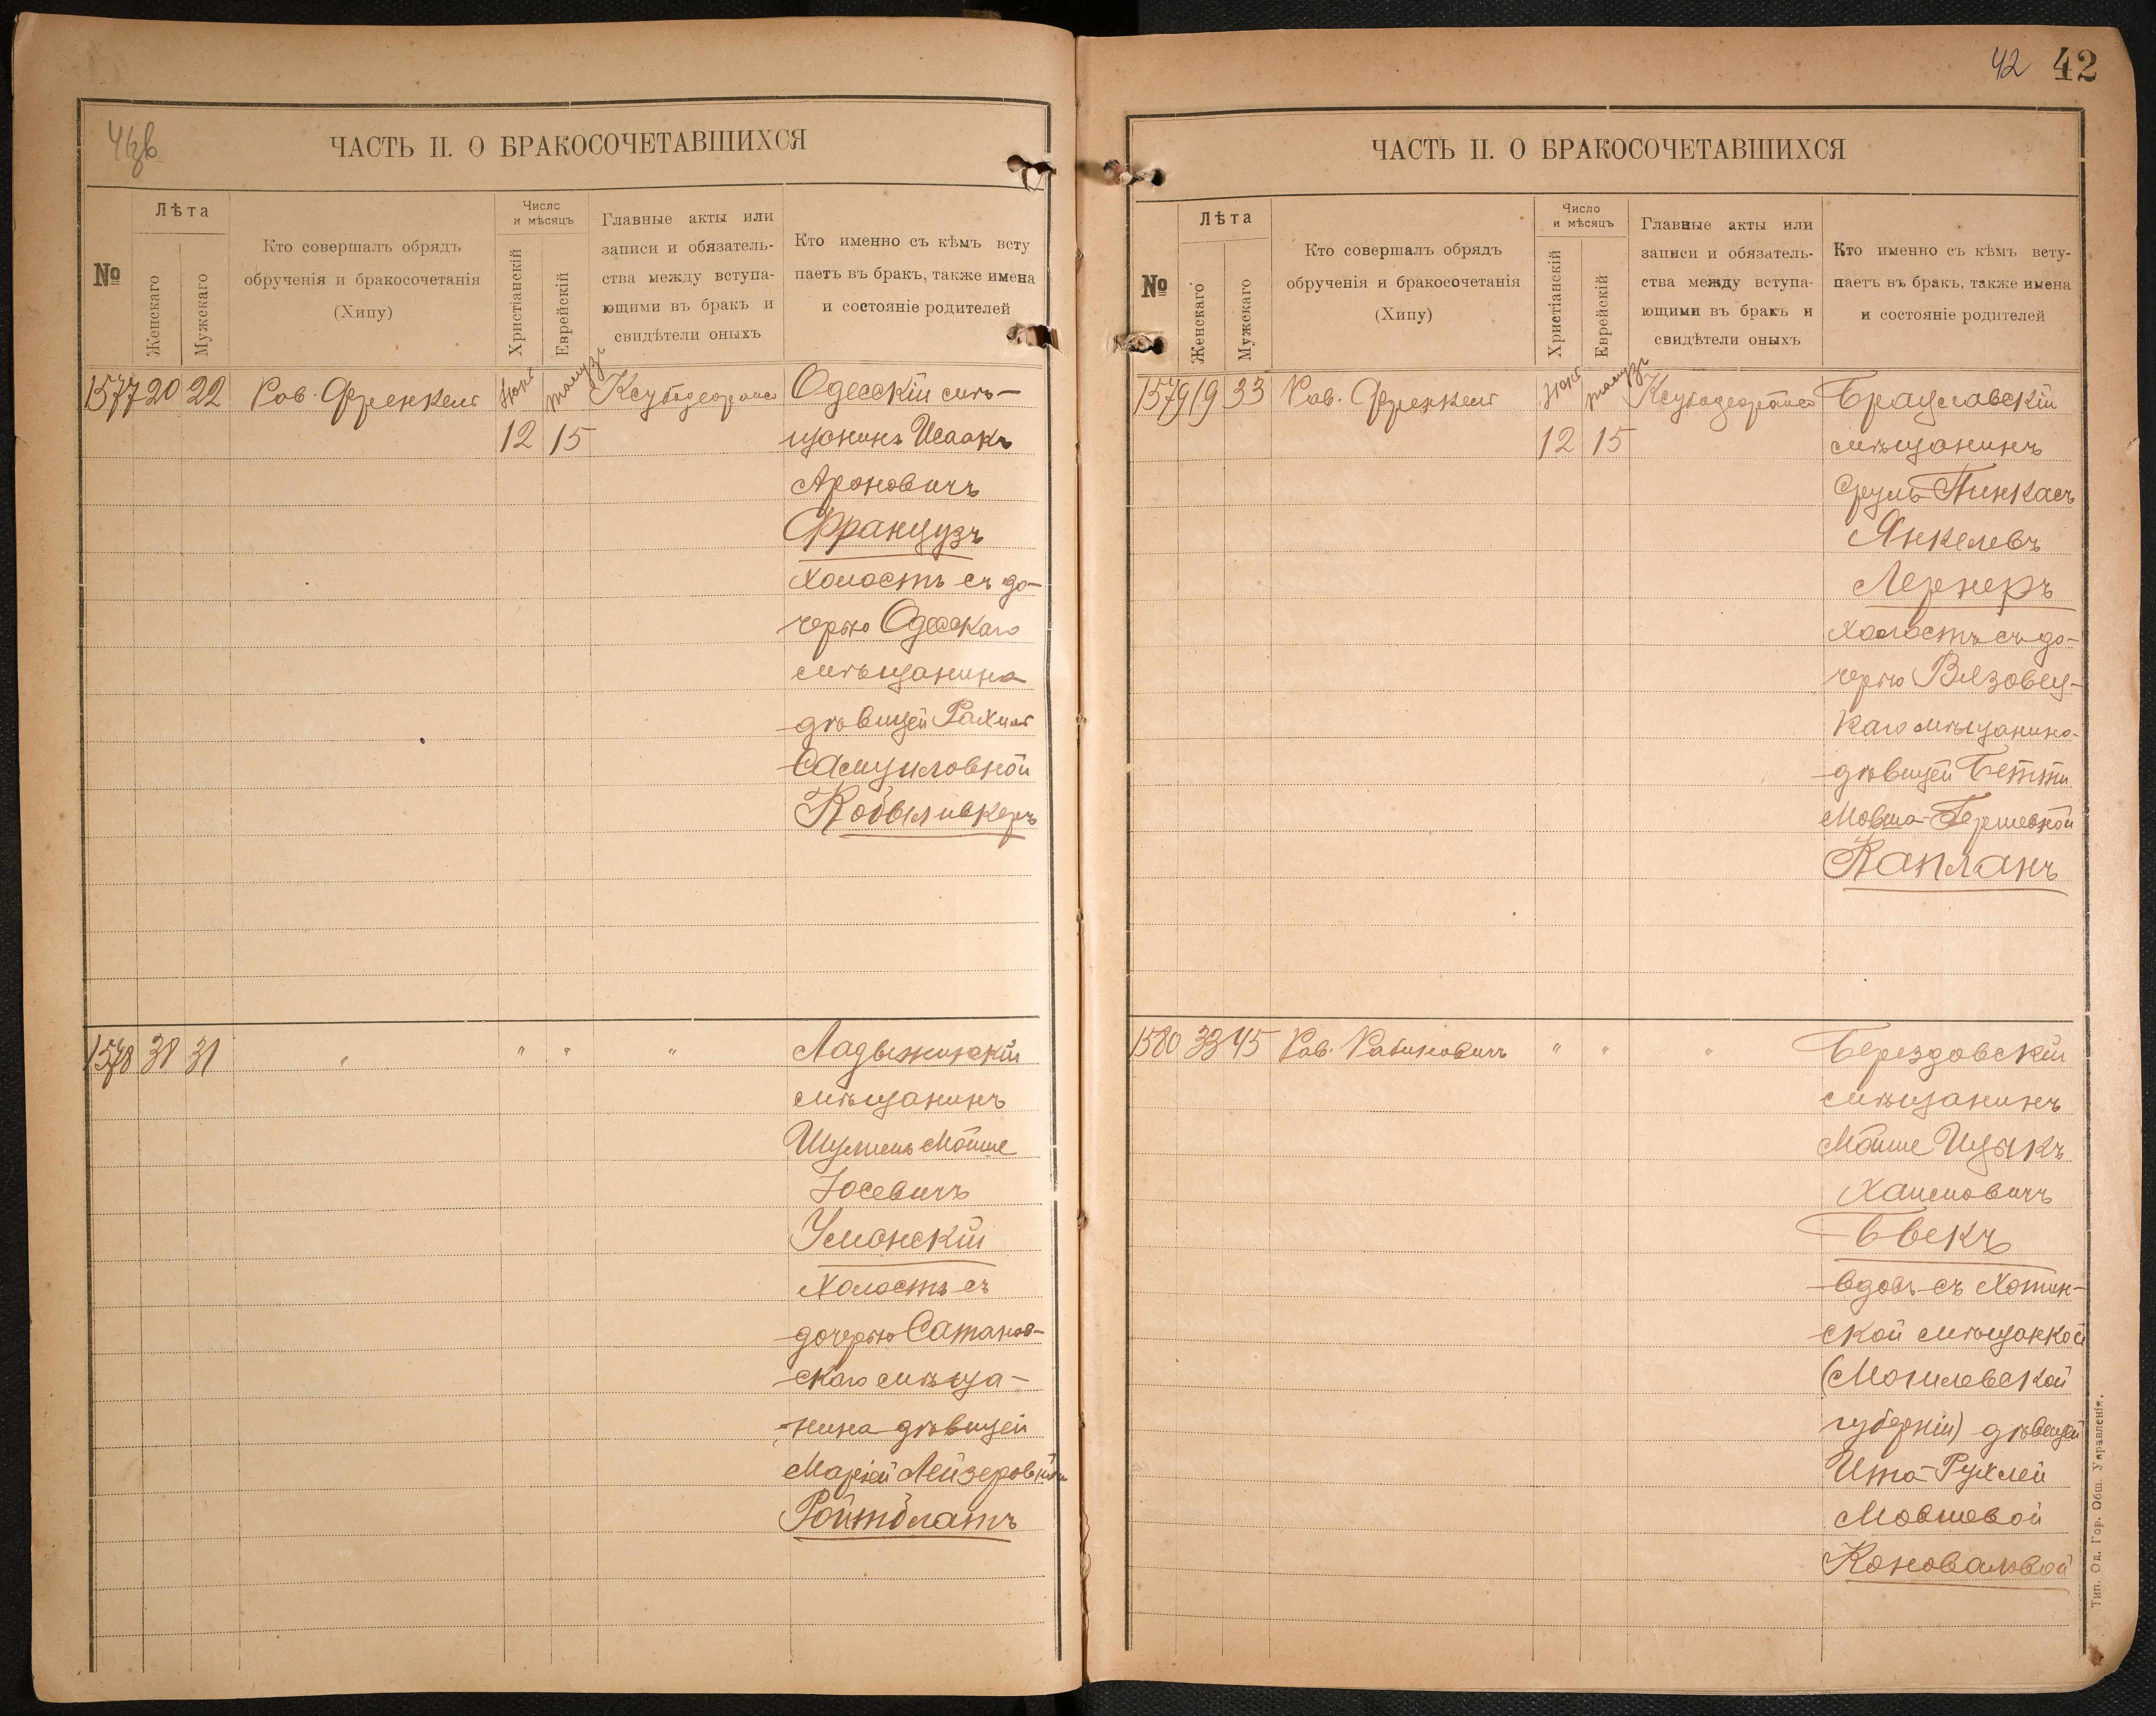 41об
ЧАСТЬ II. О БРАКОСОЧЕТАВШИХСЯ
№
Лѣта
Женскаго
Мужескаго
Кто совершалъ обрядъ
обрученія и бракосочетанія
(Хипу)
Число
и мѣсяцъ
Христіанскій
Еврейскій
Главные акты или
записи и обязатель-
ства между вступа-
ющими въ бракъ и
свидѣтели оныхъ
Кто именно съ кѣмъ всту
паетъ въ бракъ, также имена
и состояніе родителей
1577 20 22 Рав. Френкель
12 15
Одесскій мѣ-
щанинъ Исаакъ
Ароновичъ
Французъ
холостъ съ до-
черью Одесскаго
мѣщанина
дѣвицей Рахиль
Самуиловной
Кобыливкеръ
1578 31 31 " " " "
Ладыжинскій
мѣщанинъ
Шулимъ Мойше
Іосевичъ
Уманскій
Холостъ съ
дочерью Саманов-
скаго мѣща-
нина дѣвицей
Маріей Лейзеровной
Ройтблатъ
42 42
ЧАСТЬ II. О БРАКОСОЧЕТАВШИХСЯ
№
Лѣта
Женскаго
Мужескаго
Кто совершалъ обрядъ
обрученія и бракосочетанія
(Хипу)
Число
и мѣсяцъ
Христіанскій
Еврейскій
Главные акты или
записи и обязатель-
ства между вступа-
ющими въ бракъ и
свидѣтели оныхъ
Кто именно съ кѣмъ всту-
паетъ въ бракъ, также имена
и состояніе родителей
1579 19 33 Рав. Френкель
12 15
Брацлавскій
мѣщанинъ
Сруль Пинкасъ
Янкелевъ
Лернеръ
холостъ съ до-
черью Вязовец-
каго мѣщанина
дѣвицей Бетти
Мовша-Гершевной
Капланъ
1580 33 45 Рав. Рабиновичъ " " "
Берездовскій
мѣщанинъ
Мойше Ицыкъ
Хаимовичъ
Бекъ
вдовъ съ Хотин-
ской мѣщанкой
(Могилевской
губерніи) дѣвицей
Ита-Рухлей
Мовшевой
Коноваловой
Тип. Од. Гор. Общ. Управленія.